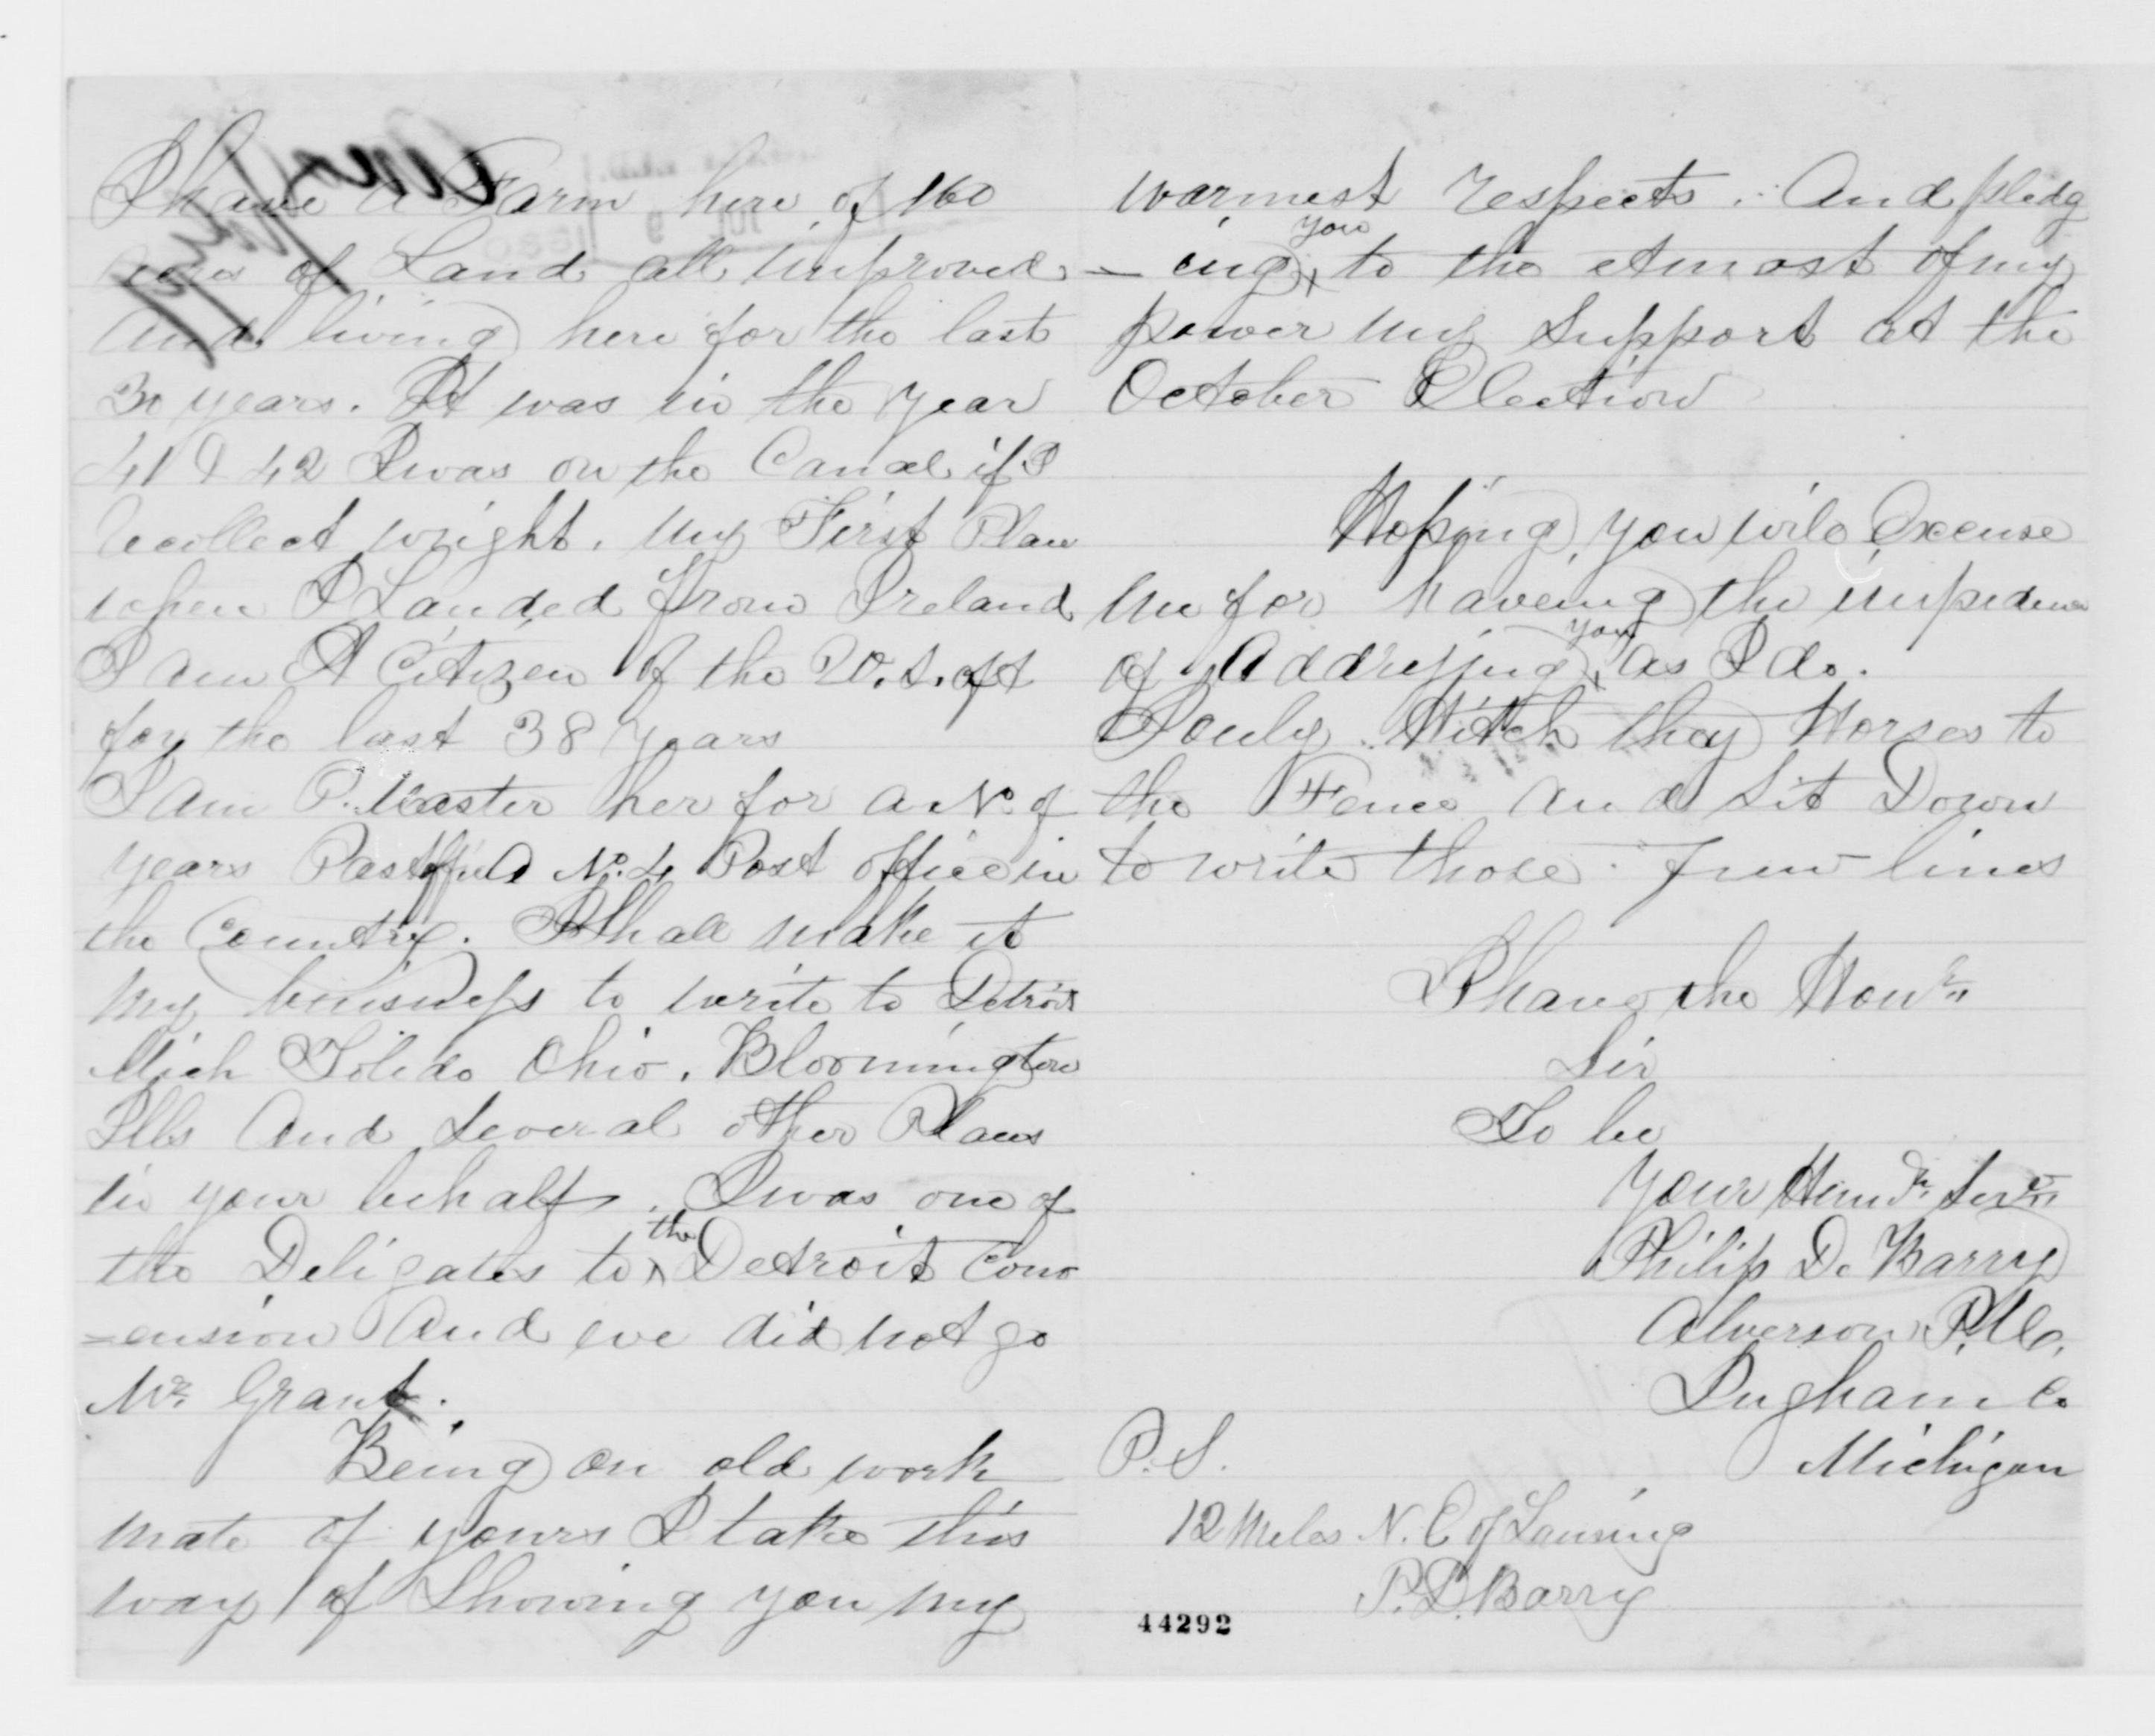 I have a Farm here of 160
Acres of Land all improved
and living here for the last
30 years. It was in the year
41 & 42 I was on the Canal if I
recollect wright. my First Place
when I Landed from Ireland
I am A Citizen of the U.S. of A
for the last 38 years
I am P. Master her for a No. of
years Past A No. 4 Post office in
the Country. I Shall make it
my buisness to write to Detroit
Mich Toledo Ohio. Bloomington
Ills And Several other Places
in your behalf. I was one of
the Deligates to the Detroit Conv
=ension And we did not go
Mr. Grant.
Being an old work
mate of yours I take this
way of Showing you my
warmest respects. And pledg
-ing you to the utmost of my
power my Support at the
October Election
Hoping you will Excuse
me for haveing the impedence
of Addressing you as I do.
I only Hitch they Horses to
the Fence and Sit Down
to write those few lines
I have the Honr
Sir
To be
Your Humb Servn
Philip D. Barry
Alverson P.M.
Ingham Co
Michigan
P.S.
12 Miles N.E of Lansing
P.D. Barry
44292